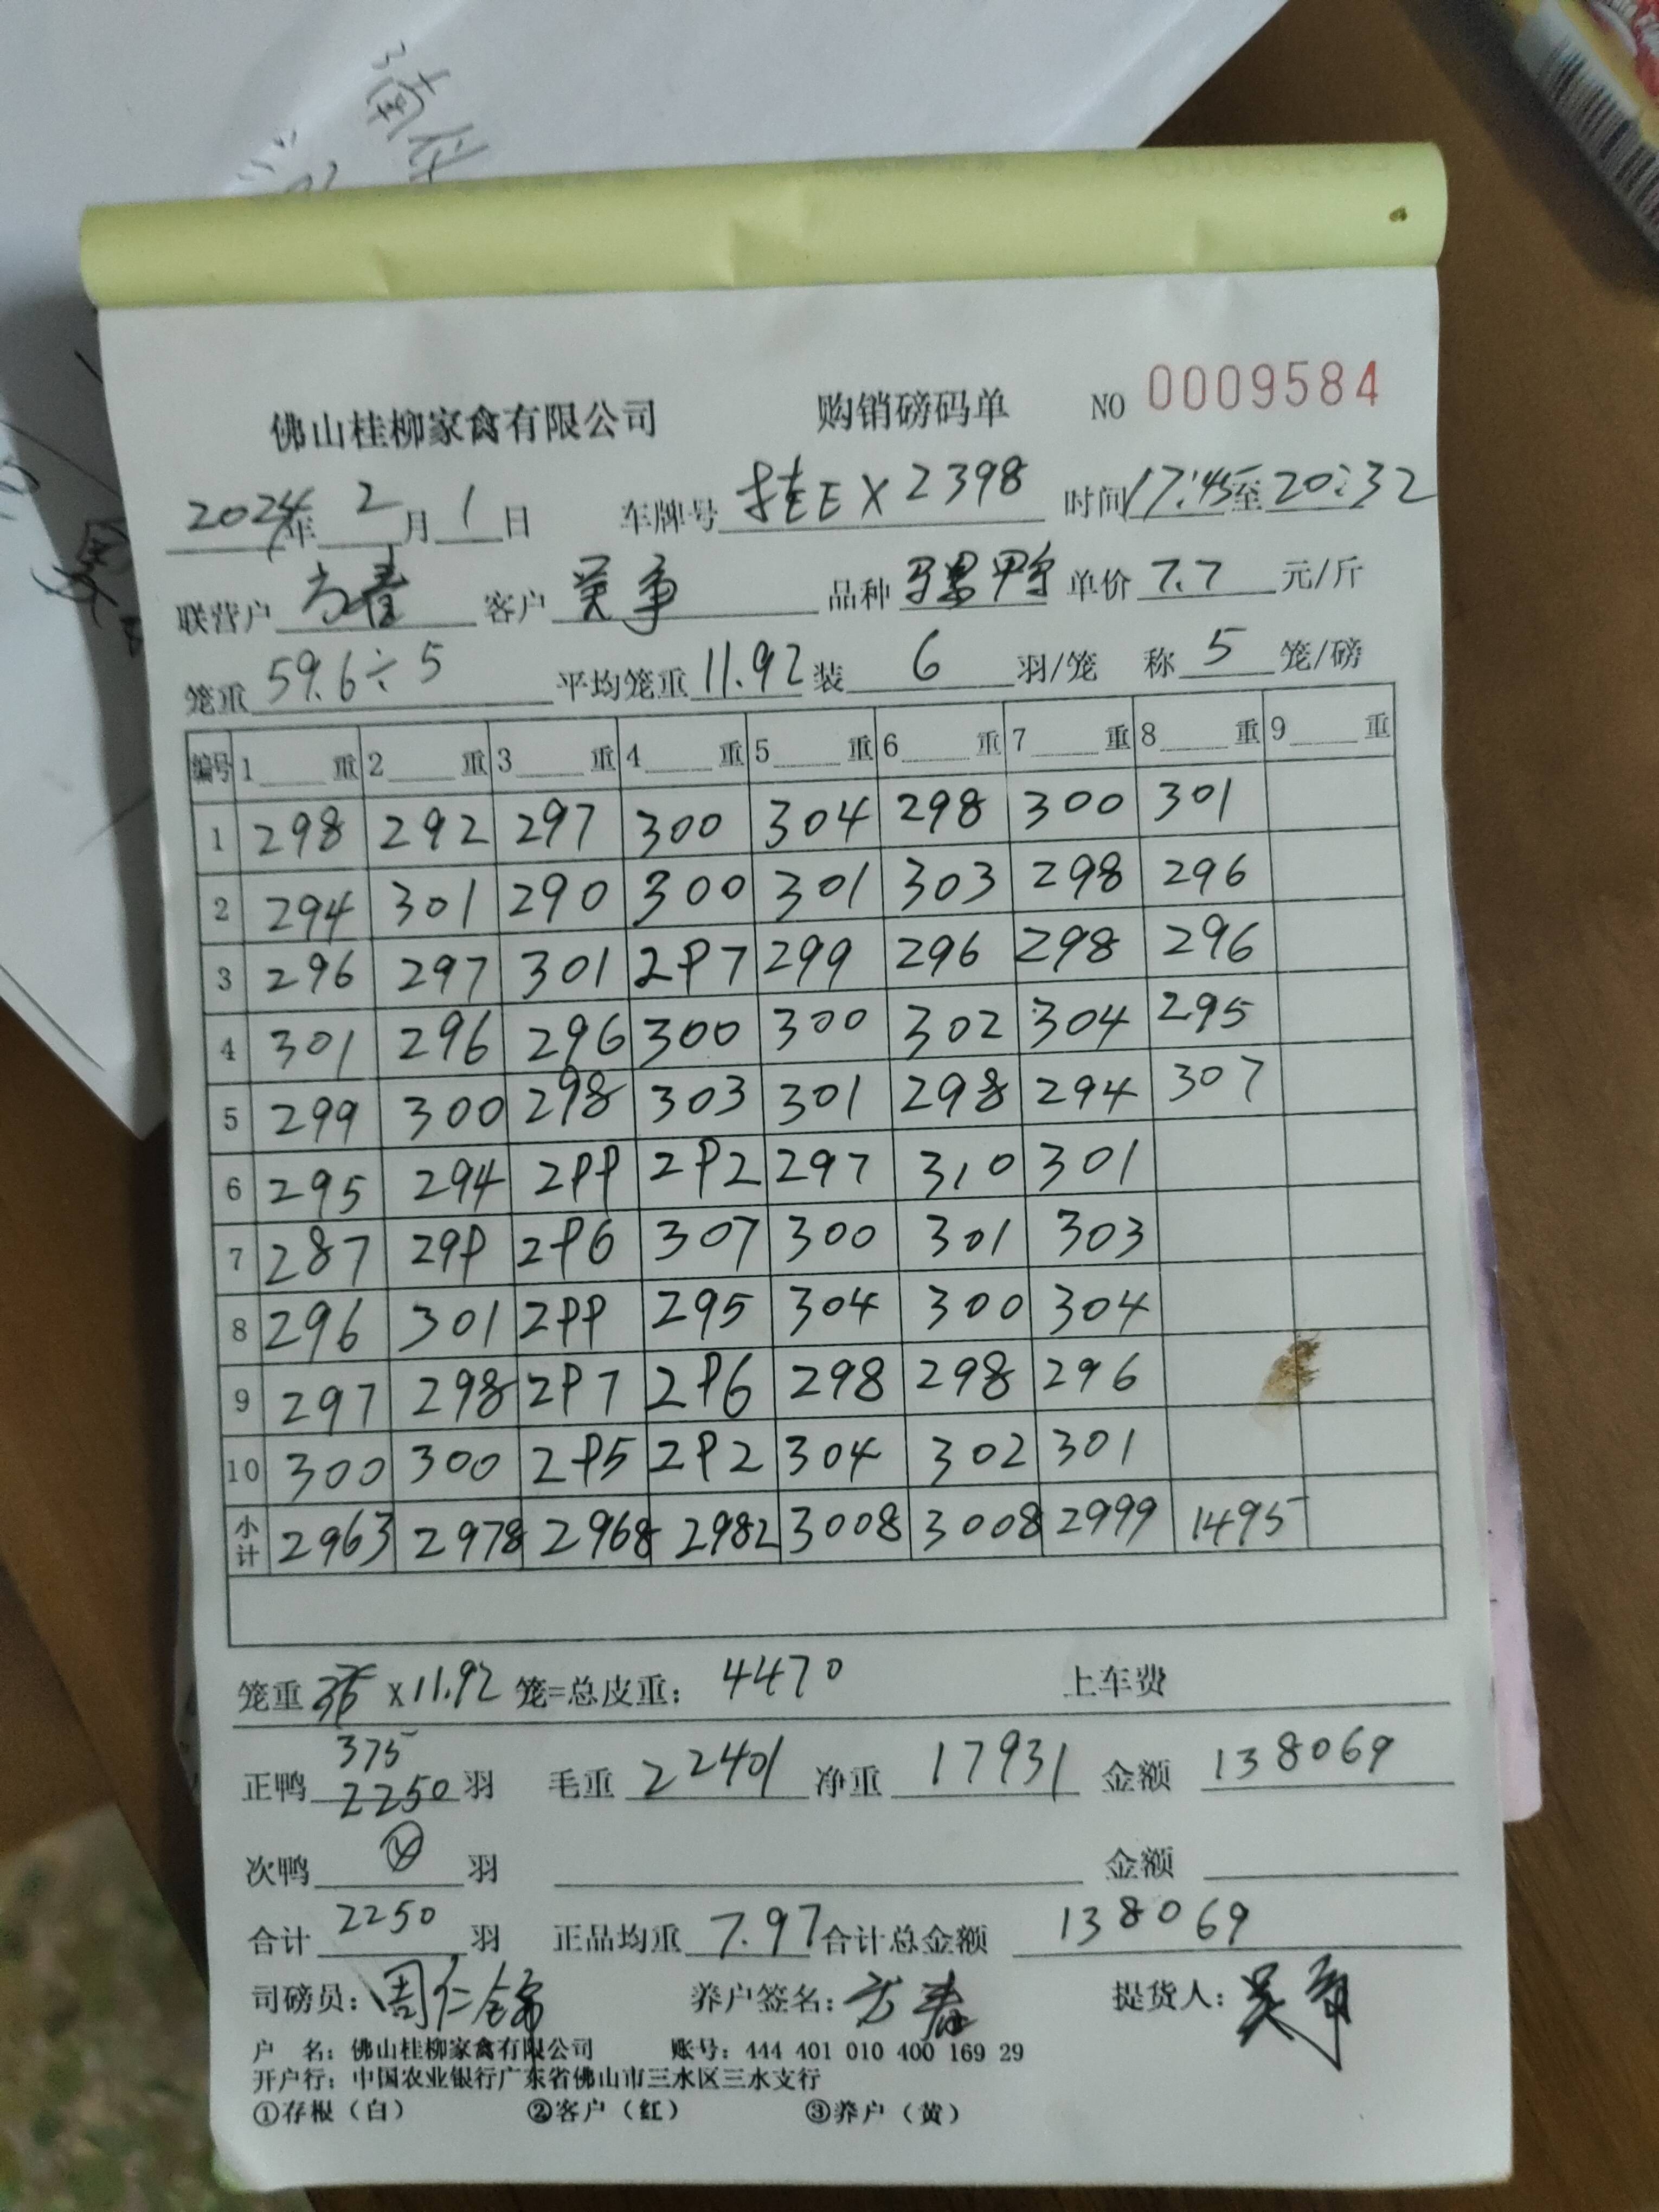 佛山桂柳家禽有限公司 购销磅码单 NO 0009584
2024年 2 月 1 日 车牌号 桂EX2398 时间 17:45 至 20:32
联营户 方春 客户 吴争 品种 骡鸭 单价 7.7 元/斤
笼重 59.6÷5 平均笼重 11.92 装 6 羽/笼 称 5 笼/磅
编号 1 重 2 重 3 重 4 重 5 重 6 重 7 重 8 重 9 重
1 298 292 297 300 304 298 300 301
2 294 301 290 300 301 303 298 296
3 296 297 301 297 299 296 298 296
4 301 296 296 300 300 302 304 295
5 299 300 298 303 301 298 294 307
6 295 294 299 292 297 310 301
7 287 299 296 307 300 301 303
8 296 301 299 295 304 300 304
9 297 298 297 296 298 298 296
10 300 300 295 292 304 302 301
小计 2963 2978 2968 2982 3008 3008 2999 1495
笼重 x 11.92 笼=总皮重: 4470 上车费
375
正鸭 2250 羽 毛重 22401 净重 17931 金额 138069
次鸭 羽 金额
合计 2250 羽 正品均重 7.97 合计总金额 138069
司磅员: 周仁锦 养户签名: 方春 提货人: 吴争
户 名: 佛山桂柳家禽有限公司 账号: 444 401 010 400 169 29
开户行: 中国农业银行广东省佛山市三水区三水支行
①存根(白) ②客户(红) ③养户(黄)